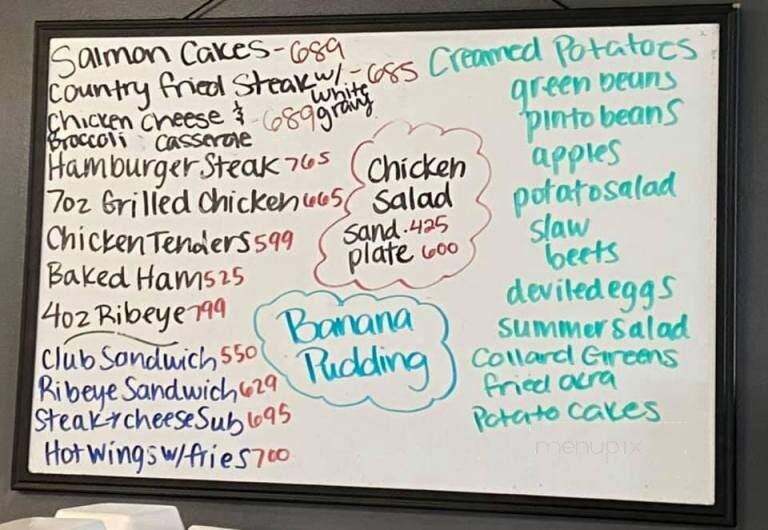 Salmon Cakes - 689
Country fried Steak w/ - 685
white
gravy
Chicken cheese & - 689
Broccoli casserole
Hamburger Steak 765
7oz Grilled Chicken 665
Chicken Tenders 599
Baked Ham 525
4oz Ribeye 799
Club Sandwich 550
Ribeye Sandwich 629
Steak + cheese Sub 695
Hot wings w/fries 700
Chicken
Salad
Sand. 425
plate 600
Banana
Pudding
Creamed Potatoes
green beans
pinto beans
apples
potato salad
slaw
beets
deviled eggs
summer salad
Collard Greens
fried ocra
Potato Cakes
menupix